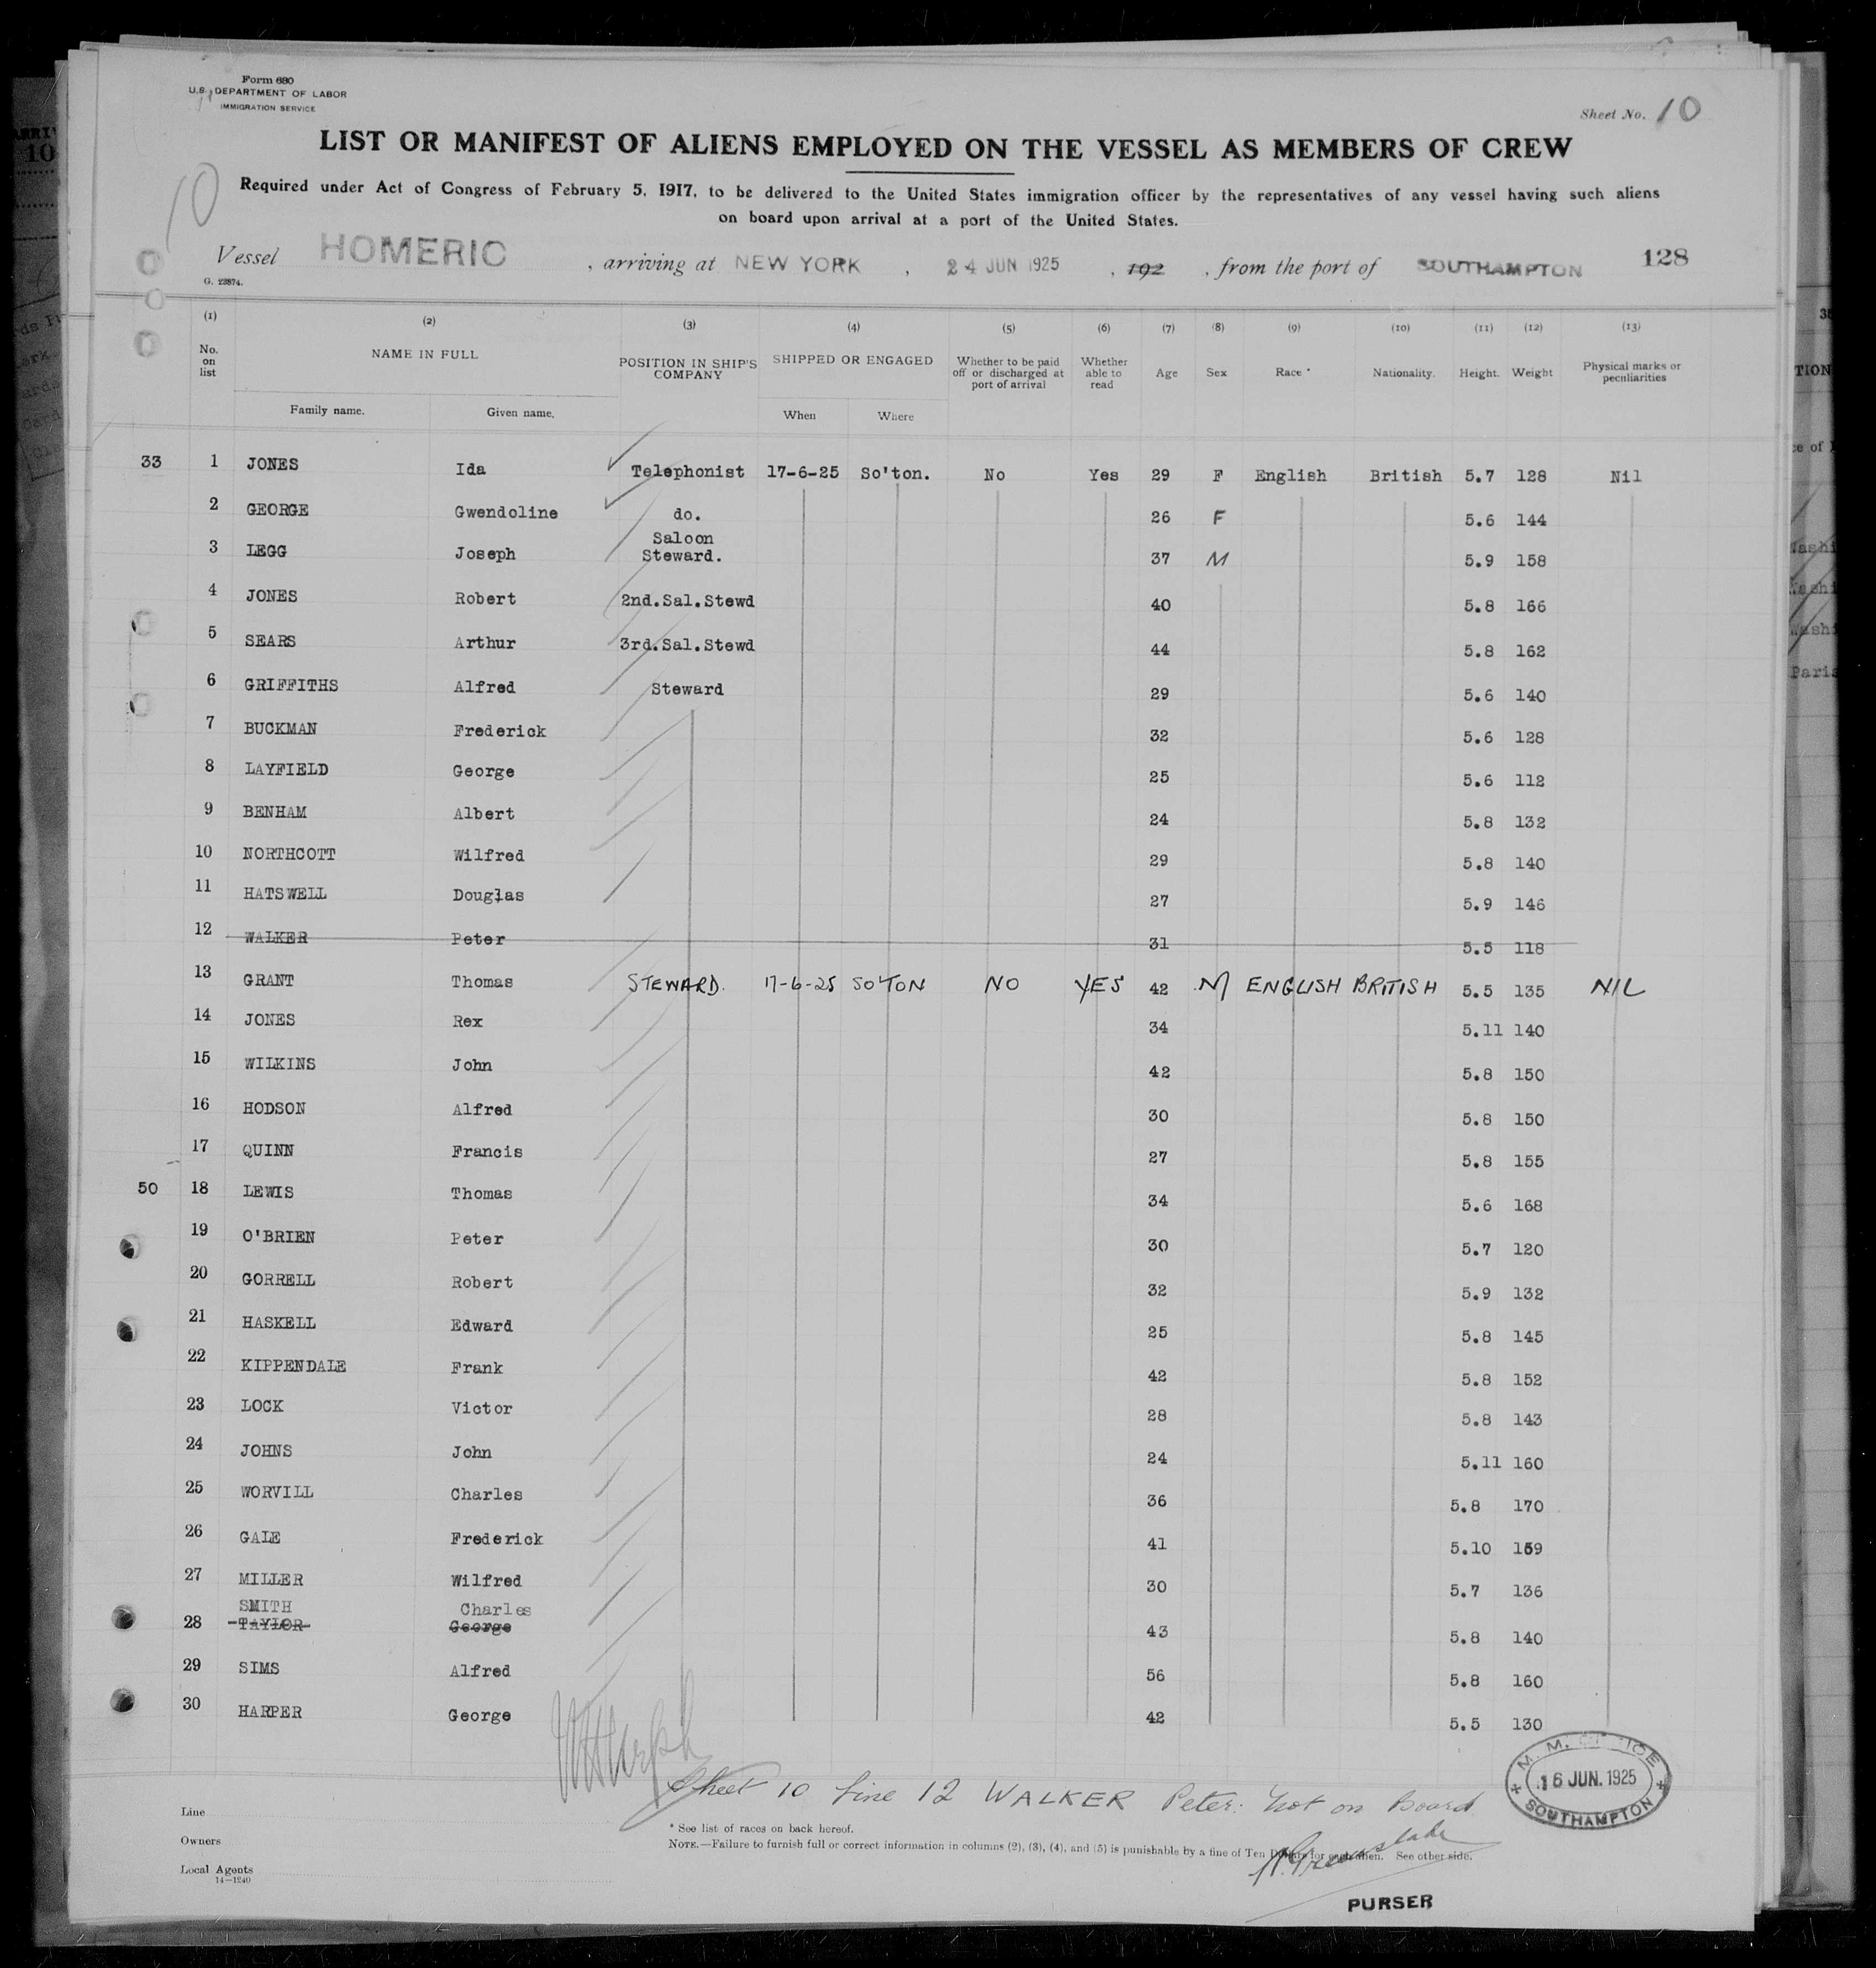 Form 680
U.S. DEPARTMENT OF LABOR
IMMIGRATION SERVICE
Sheet No. 10
LIST OR MANIFEST OF ALIENS EMPLOYED ON THE VESSEL AS MEMBERS OF CREW
10
Required under Act of Congress of February 5, 1917, to be delivered to the United States immigration officer by the representatives of any vessel having such aliens
on board upon arrival at a port of the United States.
Vessel HOMERIC , arriving at NEW YORK , 24 JUN 1925 , 192 , from the port of SOUTHAMPTON 128
G. 23874.
(1) (2) (3) (4) (5) (6) (7) (8) (9) (10) (11) (12) (13)
No. on list NAME IN FULL POSITION IN SHIP'S COMPANY SHIPPED OR ENGAGED Whether to be paid off or discharged at port of arrival Whether able to read Age Sex Race * Nationality. Height. Weight Physical marks or peculiarities
Family name. Given name. When Where
33 1 JONES Ida Telephonist 17-6-25 So'ton. No Yes 29 F English British 5.7 128 Nil
2 GEORGE Gwendoline do. 26 F 5.6 144
3 LEGG Joseph Saloon Steward. 37 M 5.9 158
4 JONES Robert 2nd.Sal.Stewd 40 5.8 166
5 SEARS Arthur 3rd.Sal.Stewd 44 5.8 162
6 GRIFFITHS Alfred Steward 29 5.6 140
7 BUCKMAN Frederick 32 5.6 128
8 LAYFIELD George 25 5.6 112
9 BENHAM Albert 24 5.8 132
10 NORTHCOTT Wilfred 29 5.8 140
11 HATSWELL Douglas 27 5.9 146
12 WALKER Peter 31 5.5 118
13 GRANT Thomas STEWARD. 17-6-25 SO'TON NO YES 42 M ENGLISH BRITISH 5.5 135 NIL
14 JONES Rex 34 5.11 140
15 WILKINS John 42 5.8 150
16 HODSON Alfred 30 5.8 150
17 QUINN Francis 27 5.8 155
50 18 LEWIS Thomas 34 5.6 168
19 O'BRIEN Peter 30 5.7 120
20 GORRELL Robert 32 5.9 132
21 HASKELL Edward 25 5.8 145
22 KIPPENDALE Frank 42 5.8 152
23 LOCK Victor 28 5.8 143
24 JOHNS John 24 5.11 160
25 WORVILL Charles 36 5.8 170
26 GALE Frederick 41 5.10 159
27 MILLER Wilfred 30 5.7 136
SMITH Charles
28 TAYLOR George 43 5.8 140
29 SIMS Alfred 56 5.8 160
30 HARPER George 42 5.5 130
Sheet 10 Line 12 WALKER Peter: not on Board
M. M. OFFICE
16 JUN. 1925
SOUTHAMPTON
Line
* See list of races on back hereof.
Owners
NOTE.—Failure to furnish full or correct information in columns (2), (3), (4), and (5) is punishable by a fine of Ten Dollars for each alien. See other side.
Local Agents
14—1240
PURSER